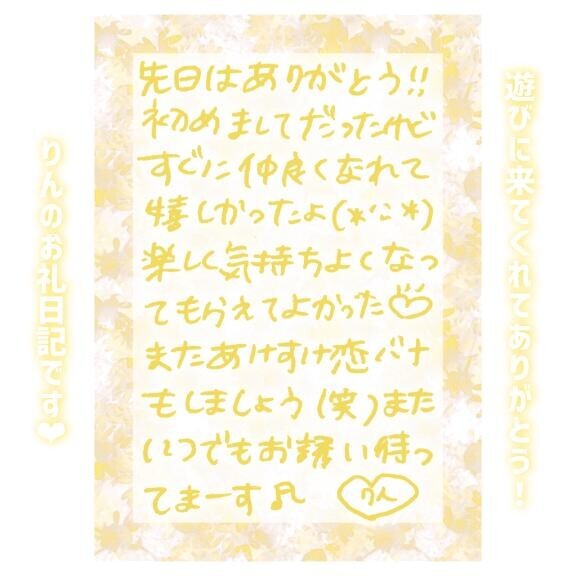 遊びに来てくれてありがとう！
先日はありがとう!!
初めましてだったけど
すぐに仲良くなれて
嬉しかったよ(*^^*)
楽しく気持ちよくなっ
てもらえてよかった♡
またあけすけ恋バナ
もしましょう(笑)また
いつでもお誘い待っ
てまーす♫ りん
りんのお礼日記です❤